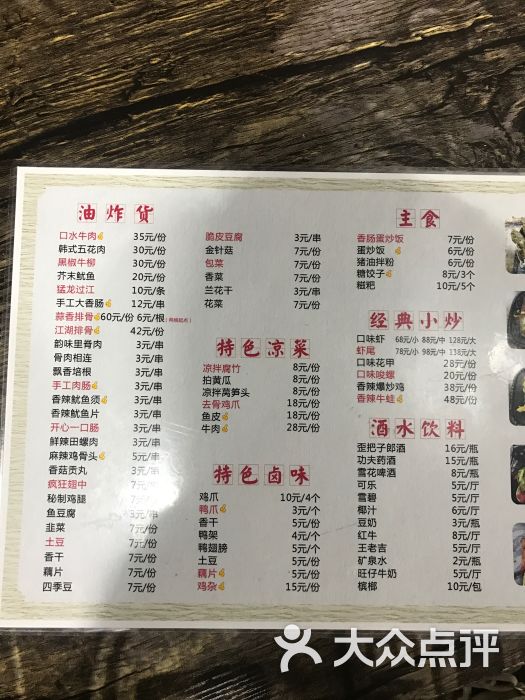 油炸货
口水牛肉 35元/份
韩式五花肉 20元/份
黑椒牛柳 30元/份
芥末鱿鱼 20元/份
猛龙过江 10元/条
手工大香肠 12元/串
蒜香排骨 60元/份 6元/根(两根起点)
江湖排骨 42元/份
韵味里脊肉 3元/串
骨肉相连 3元/串
飘香培根 3元/串
手工肉肠 3元/串
香辣鱿鱼须 3元/串
香辣鱿鱼片 3元/串
开心一口肠 3元/串
鲜辣田螺肉 3元/串
麻辣鸡骨头 5元/串
香菇贡丸 3元/串
疯狂翅中 7元/串
秘制鸡腿 7元/个
鱼豆腐 3元/串
韭菜 7元/份
土豆 7元/份
香干 7元/份
藕片 7元/份
四季豆 7元/份
脆皮豆腐 3元/串
金针菇 7元/份
包菜 7元/份
香菜 7元/份
兰花干 3元/串
花菜 7元/份
特色凉菜
凉拌腐竹 8元/份
拍黄瓜 8元/份
凉拌莴笋头 8元/份
去骨鸡爪 18元/份
鱼皮 18元/份
牛肉 28元/份
特色卤味
鸡爪 10元/4个
鸭爪 3元/个
香干 5元/份
鸭架 4元/个
鸭翅膀 5元/个
土豆 5元/份
藕片 5元/份
鸡杂 15元/份
主食
香肠蛋炒饭 7元/份
蛋炒饭 6元/份
猪油拌粉 6元/份
糖饺子 8元/3个
糍粑 10元/5个
经典小炒
口味虾 68元/小 88元/中 128元/大
虾尾 78元/小 98元/中 138元/大
口味花甲 28元/份
口味唆螺 20元/份
香辣爆炒鸡 38元/份
香辣牛蛙 48元/份
酒水饮料
歪把子郎酒 16元/瓶
功夫药酒 15元/瓶
雪花啤酒 8元/瓶
可乐 5元/厅
雪碧 5元/厅
椰汁 6元/厅
豆奶 3元/瓶
红牛 8元/厅
王老吉 5元/厅
矿泉水 2元/瓶
旺仔牛奶 5元/厅
槟榔 10元/包
大众点评